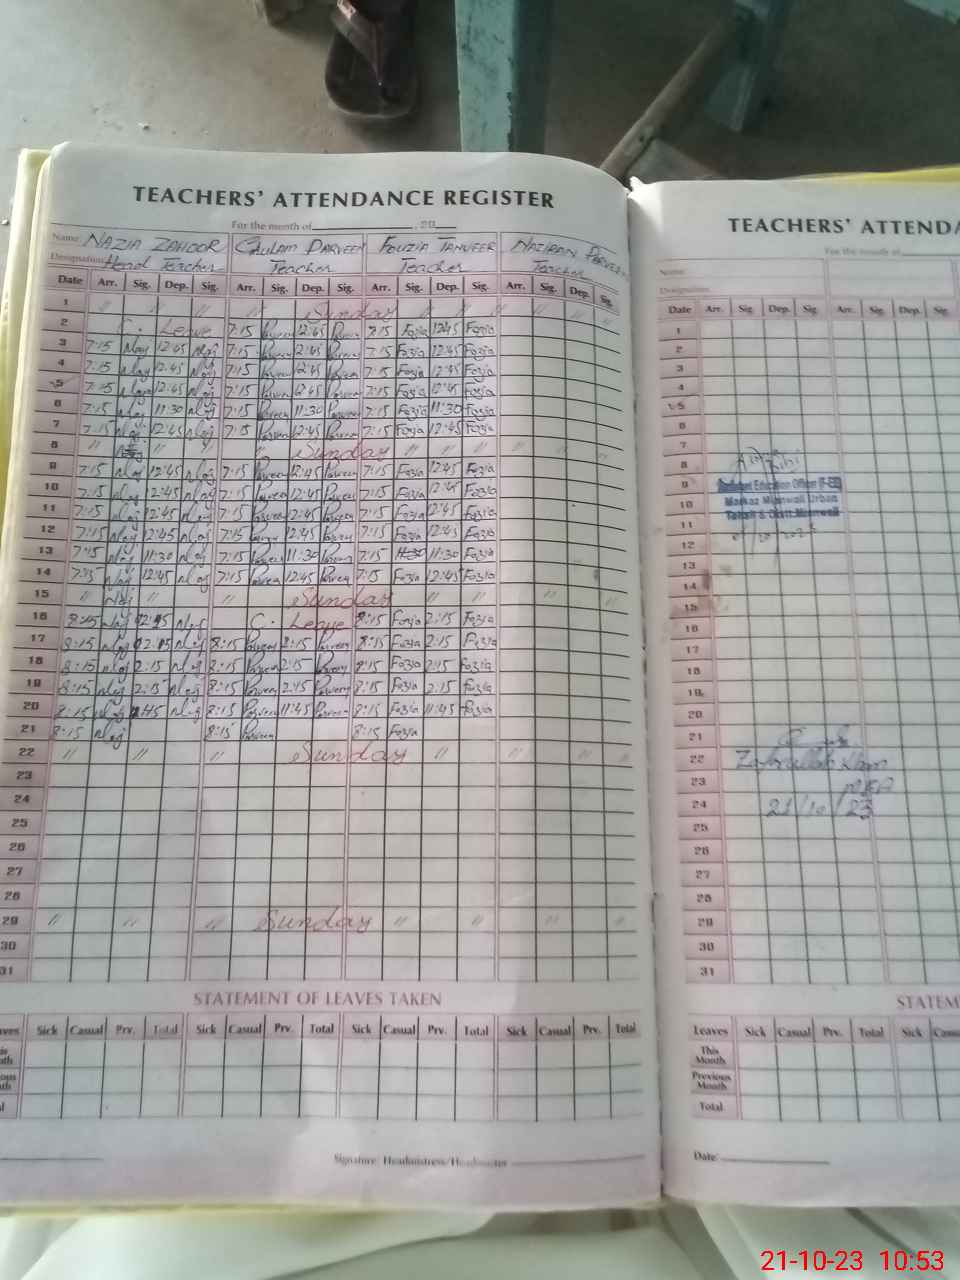 TEACHERS' ATTENDANCE REGISTER
For the month of , 20
Name: NAZIA ZAHOOR GHULAM PARVEEN FOUZIA TANVEER NAZIRAN PARVEEN
Designation: Head Teacher Teacher Teacher Teacher
Date Arr. Sig. Dep. Sig. Arr. Sig. Dep. Sig. Arr. Sig. Dep. Sig. Arr. Sig. Dep. Sig.
1 " " " Sunday " " " " "
2 C. Leave 7:15 Parveen 12:45 Parveen 7:15 Fozia 12:45 Fozia
3 7:15 12:45 7:15 Parveen 12:45 Parveen 7:15 Fozia 12:45 Fozia
4 7:15 12:45 7:15 Parveen 12:45 Parveen 7:15 Fozia 12:45 Fozia
5 7:15 12:45 7:15 Parveen 12:45 Parveen 7:15 Fozia 12:45 Fozia
6 7:15 11:30 7:15 Parveen 11:30 Parveen 7:15 Fozia 11:30 Fozia
7 7:15 12:45 7:15 Parveen 12:45 Parveen 7:15 Fozia 12:45 Fozia
8 " " " Sunday " " " " "
9 7:15 12:45 7:15 Parveen 12:45 Parveen 7:15 Fozia 12:45 Fozia
10 7:15 12:45 7:15 Parveen 12:45 Parveen 7:15 Fozia 12:45 Fozia
11 7:15 12:45 7:15 Parveen 12:45 Parveen 7:15 Fozia 12:45 Fozia
12 7:15 12:45 7:15 Parveen 12:45 Parveen 7:15 Fozia 12:45 Fozia
13 7:15 11:30 7:15 Parveen 11:30 Parveen 7:15 11:30 Fozia
14 7:15 12:45 7:15 Parveen 12:45 Parveen 7:15 Fozia 12:45 Fozia
15 " " " Sunday " " " "
16 8:15 2:15 C. Leave 8:15 Fozia 2:15 Fozia
17 8:15 2:15 8:15 Parveen 2:15 Parveen 8:15 Fozia 2:15 Fozia
18 8:15 2:15 8:15 Parveen 2:15 Parveen 8:15 Fozia 2:15 Fozia
19 8:15 2:15 8:15 Parveen 2:15 Parveen 8:15 Fozia 2:15 Fozia
20 8:15 8:15 Parveen 11:45 Parveen 8:15 Fozia 11:45 Fozia
21 8:15 8:15 Parveen 8:15 Fozia
22 " " " Sunday " " " "
23
24
25
26
27
28
29 " " " Sunday " " " "
30
31
STATEMENT OF LEAVES TAKEN
Sick Casual Prv. Total Sick Casual Prv. Total Sick Casual Prv. Total Sick Casual Prv. Total
Signature: Headmistress/Headmaster
TEACHERS' ATTENDA
For the month of
Name:
Designation:
Date Arr. Sig Dep. Sig. Arr. Sig. Dep. Sig.
1
2
3
4
5
6
7
8
9
10
11
12
13
14
15
16
17
18
19
20
21
22
23
24
25
26
27
28
29
30
31
Education Officer
Markaz Mianwali Urban
Tehsil & Distt. Mianwali
Zafrullah
21/10/23
STATEM
Leaves Sick Casual Prv. Total Sick
This Month
Previous Month
Total
Date:
21-10-23 10:53